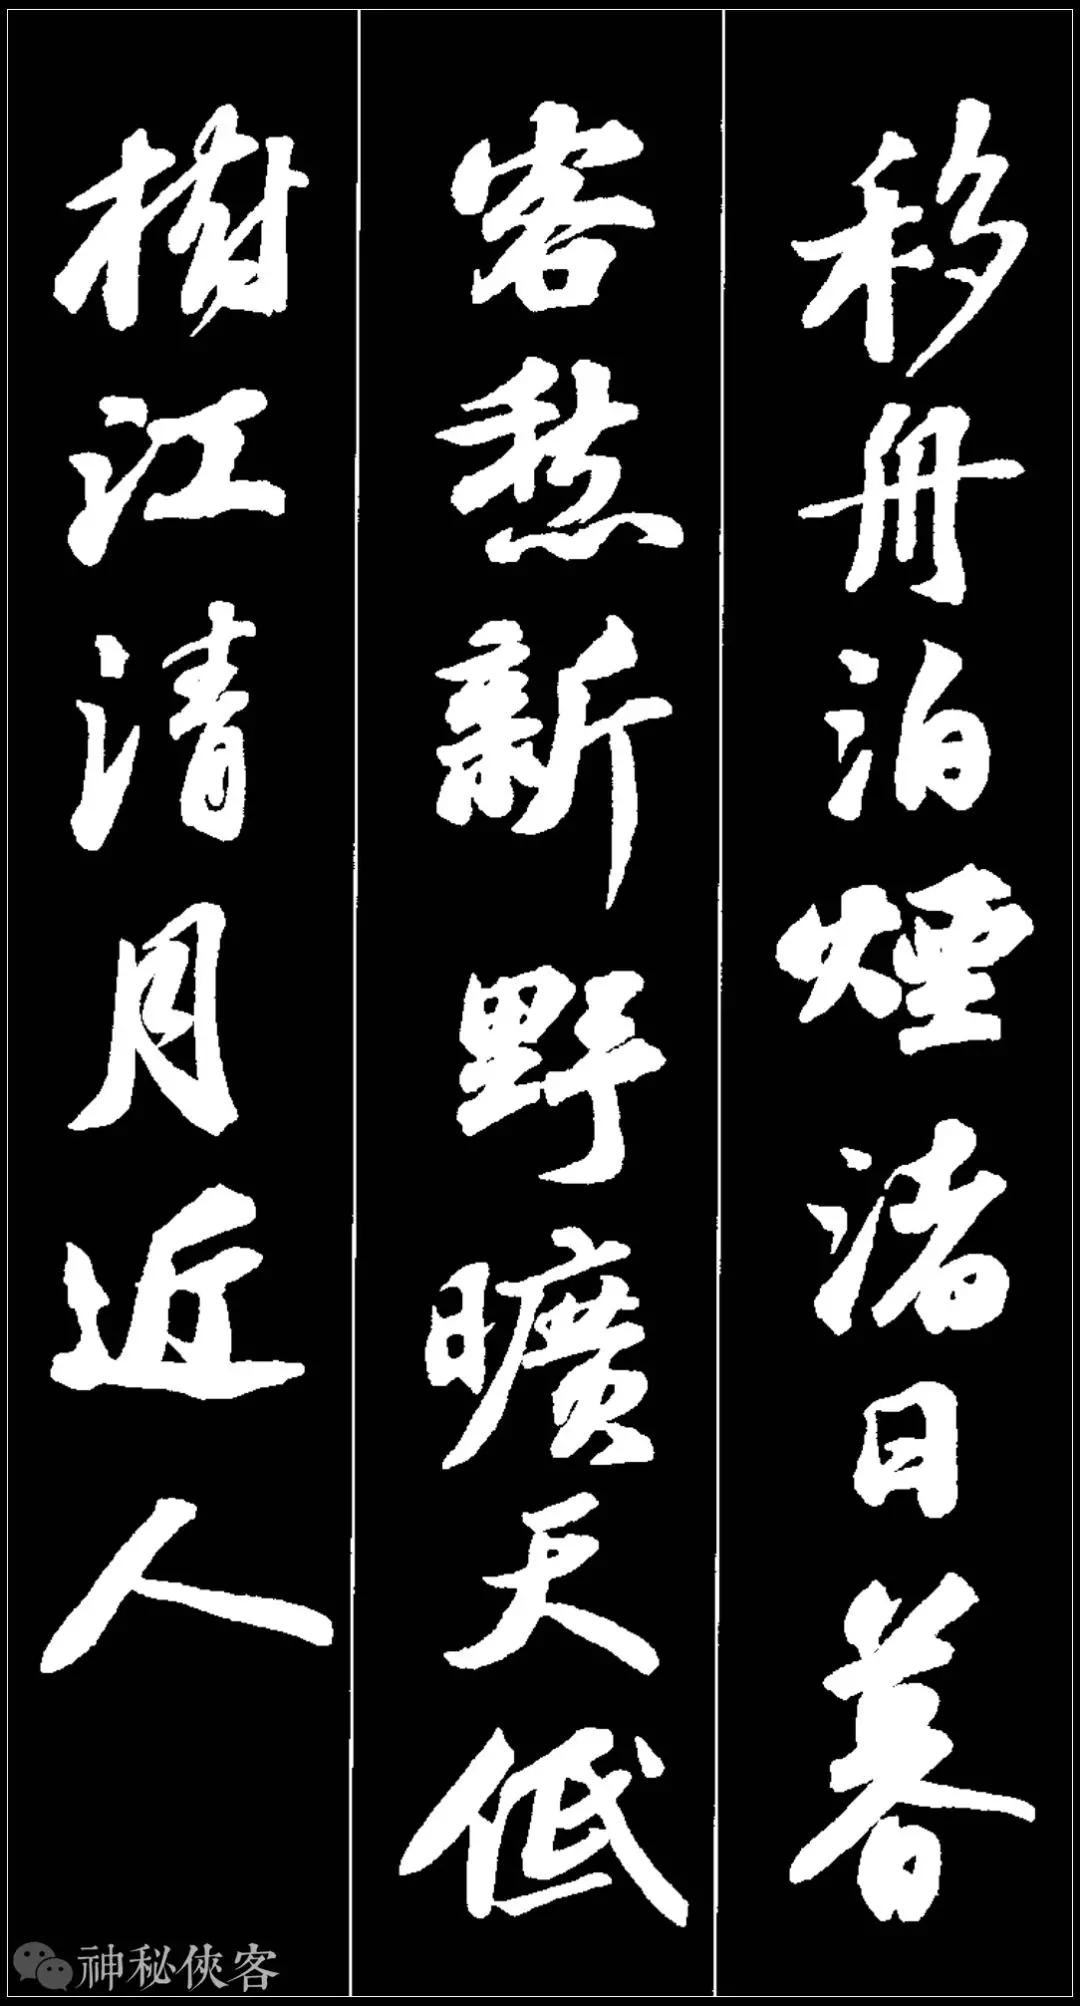 移舟泊煙渚日暮
客愁新野曠天低
樹江清月近人
神秘俠客